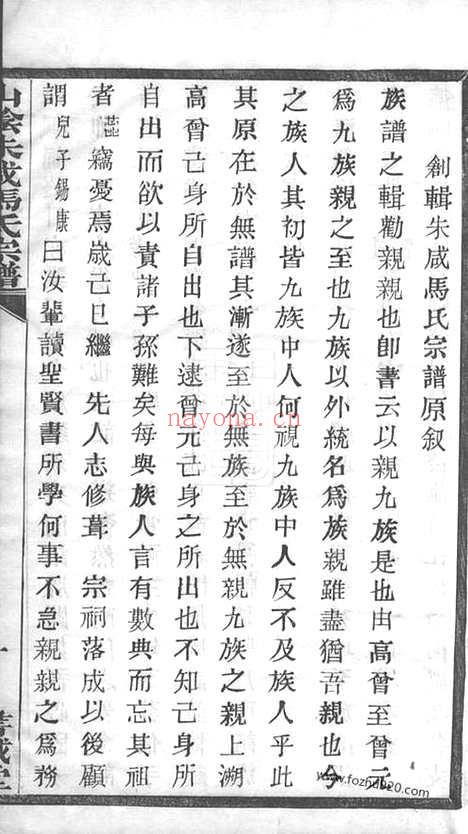 創輯朱咸馬氏宗譜原叙
族譜之輯勸親親也卽書云以親九族是也由高曾至曾元
爲九族親之至也九族以外統名爲族親雖盡猶吾親也今
之族人其初皆九族中人何視九族中人反不及族人乎此
其原在於無譜其漸遂至於無族至於無親九族之親上溯
高曾己身所自出也下逮曾元己身之所出也不知己身所
自出而欲以責諸子孫難矣每與族人言有數典而忘其祖
者蕋竊憂焉歲己巳繼 先人志修葺 宗祠落成以後顧
謂兒子錫康曰汝輩讀聖賢書所學何事不急親親之爲務
山陰朱咸馬氏宗譜
一
nayona.cn
www.fozhu920.com